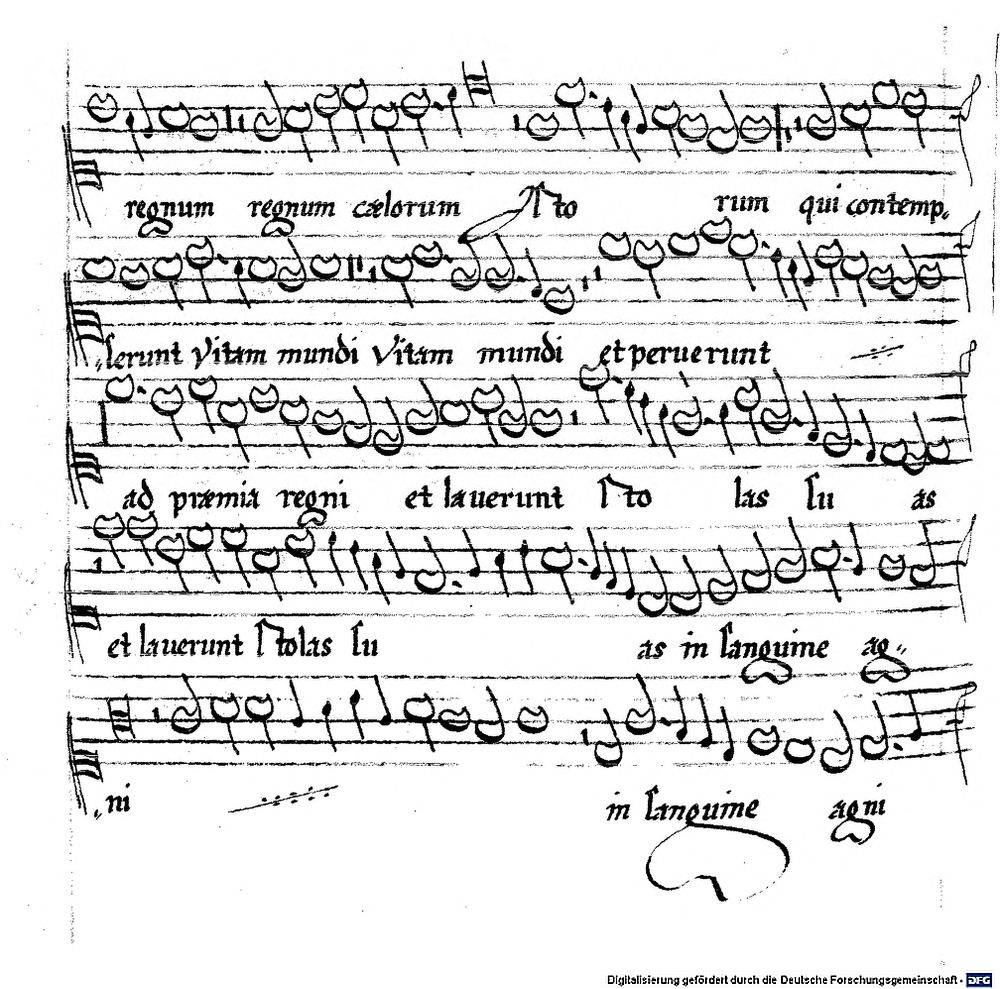 regnum regnum cælorum Isto rum qui contemp„
„serunt Vitam mundi Vitam mundi et peruerunt
ad præmia regni et lauerunt sto las su as
et lauerunt stolas su as in sanguine ag„
„ni in sanguine agni
Digitalisierung gefördert durch die Deutsche Forschungsgemeinschaft - DFG